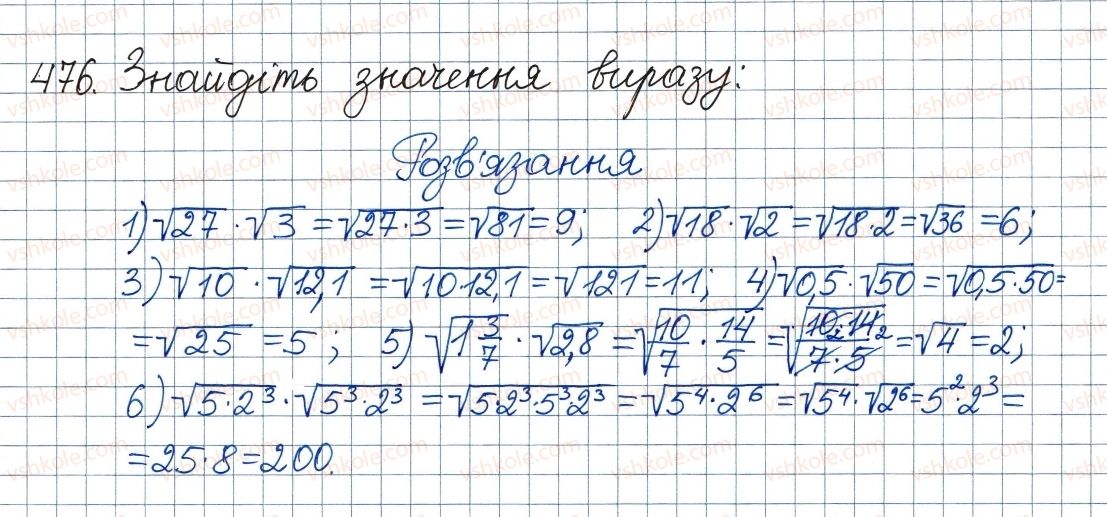 476. Знайдіть значення виразу:
Розв'язання
1) √27 · √3 = √27·3 = √81 = 9; 2) √18 · √2 = √18·2 = √36 = 6;
3) √10 · √12,1 = √10·12,1 = √121 = 11; 4) √0,5 · √50 = √0,5·50 =
= √25 = 5; 5) √1 3/7 · √2,8 = √10/7 · 14/5 = √10 2·14 2/7·5 = √4 = 2;
6) √5·2³ · √5³·2³ = √5·2³·5³·2³ = √5⁴·2⁶ = √5⁴ · √2⁶ = 5²·2³ =
= 25·8 = 200.
vshkole.com